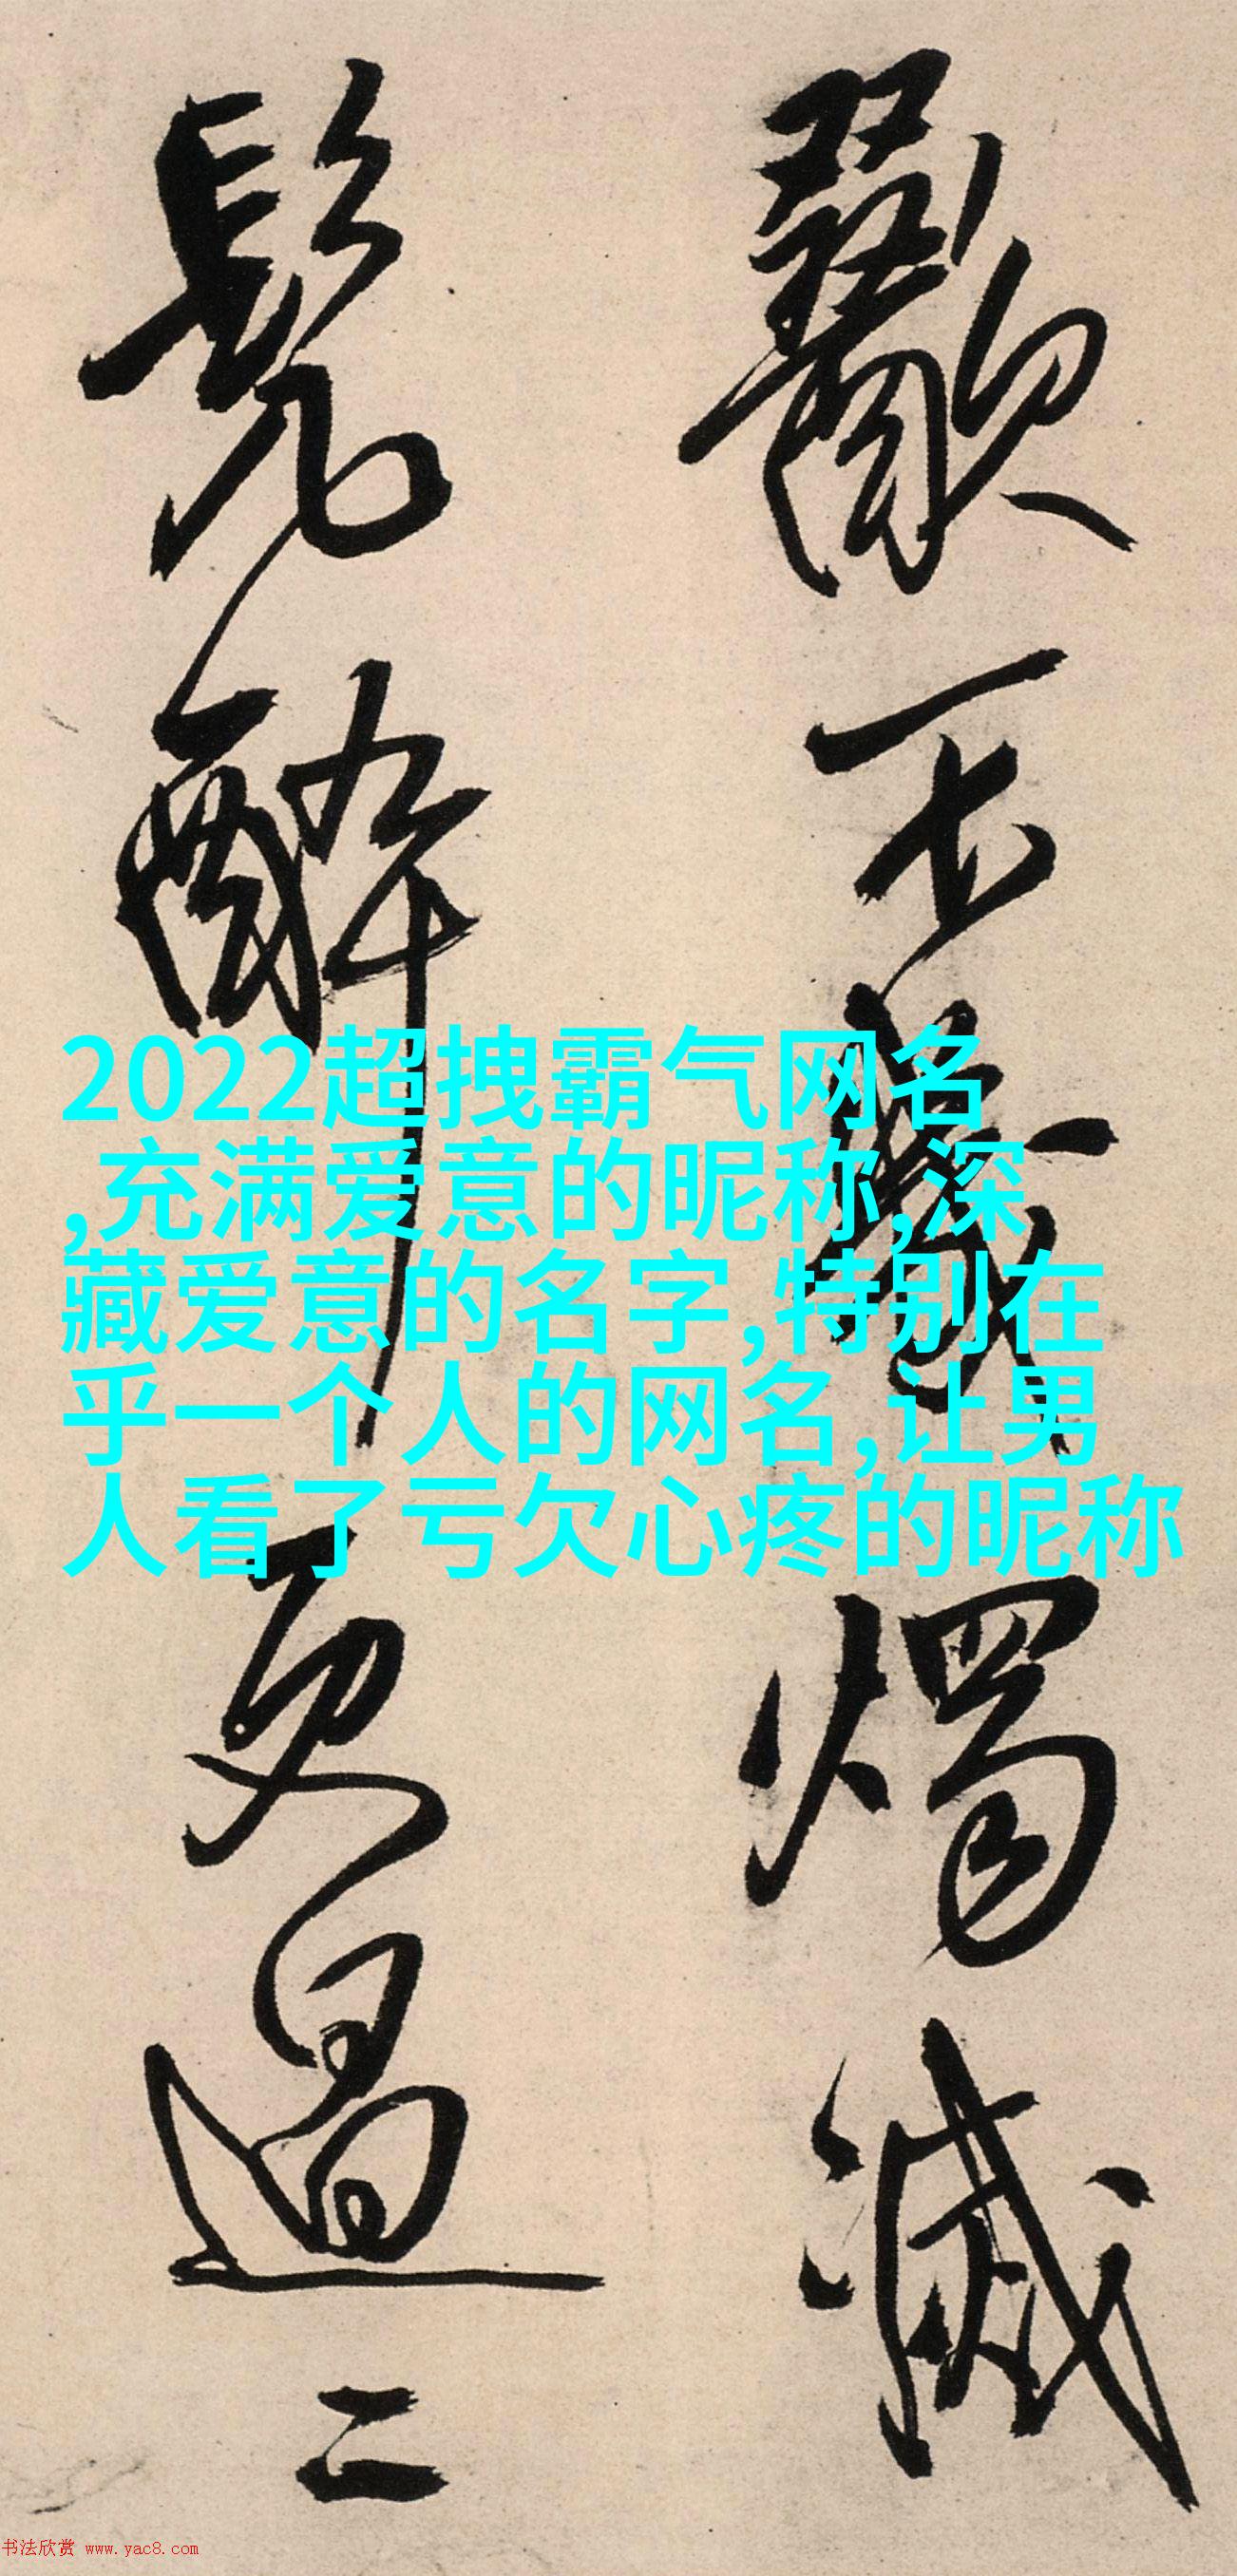 不燭滅
髡醉更過二
2022超拽霸气网名
,充满爱意的昵称,深
藏爱意的名字,特别在
乎一个人的网名,让男
人看了亏欠心疼的昵称
书法欣赏 www.yac8.com